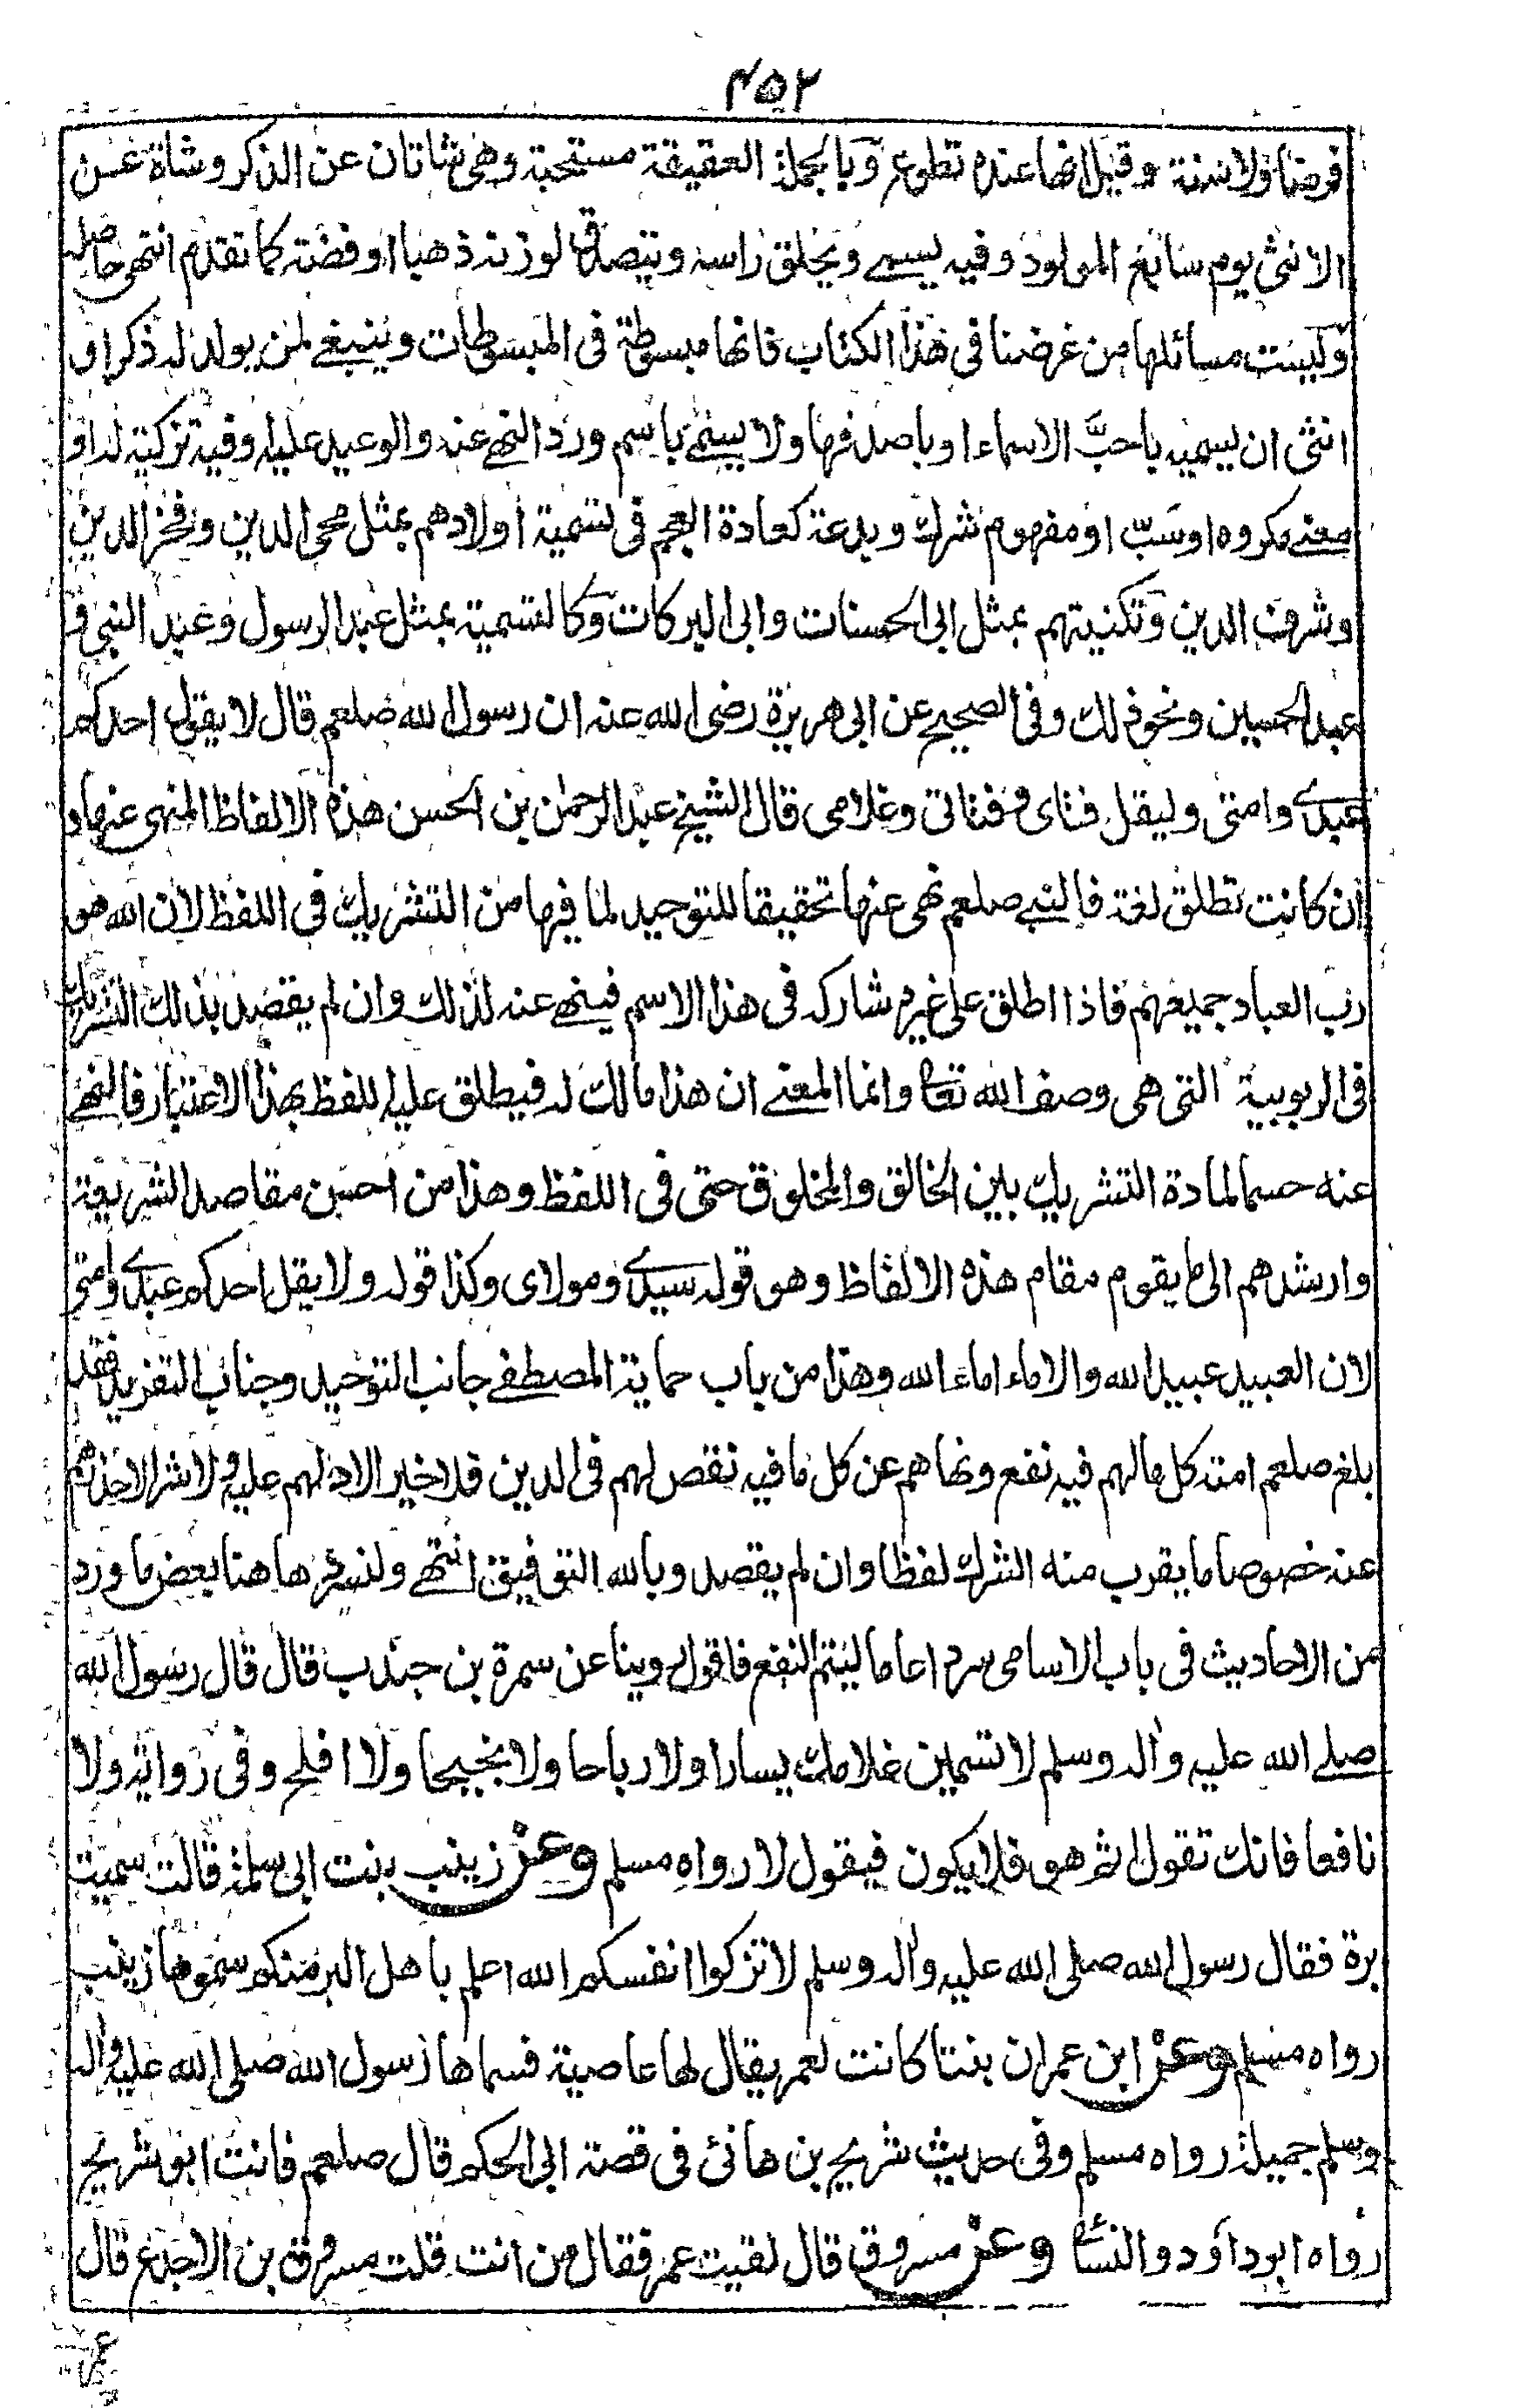 ۴۵۲
فرضا ولا سنة وقيل انها عنده تطوع وبالجملة العقيقة مستحبة وهى شاتان عن الذكر وشاة عن
الانثى يوم سابع المولود وفيه يسمى ويحلق راسه ويتصدق لوزنه ذهبا او فضة كما تقدم انتهى حاصله
وليست مسائلها من غرضنا فى هذا الكتاب فانها مبسوطة فى المبسوطات وينبغى لمن يولد له ذكر او
انثى ان يسميه باحبَّ الاسماء او باصدقها ولا يسمّى باسم ورد النهى عنه والوعيد عليه وفيه تزكية له او
معنى مكروه او سَبّ او مفهوم شرك وبدعة كعادة العجم فى تسمية اولادهم بمثل محى الدين وفخر الدين
وشرف الدين وتكنيتهم بمثل ابى الحسنات وابى البركات وكالتسمية بمثل عبد الرسول وعبد النبى و
عبد الحسين ونحو ذلك وفى الصحيح عن ابى هريرة رضى الله عنه ان رسول الله صلعم قال لا يقول احدكم
عبدى وامتى وليقل فتاى وفتاتى وغلامى قال الشيخ عبد الرحمن بن الحسن هذه الالفاظ المنهى عنها و
ان كانت تطلق لغة فالنبى صلعم نهى عنها تحقيقا للتوحيد لما فيها من التشريك فى اللفظ لان الله هو
رب العباد جميعهم فاذا اطلق على غيره شاركه فى هذا الاسم فينهى عنه لذلك وان لم يقصد بذلك التشريك
فى الربوبية التى هى وصف الله تعالى وانما المعنى ان هذا مالك له فيطلق عليه اللفظ بهذا الاعتبار فالنهى
عنه حسما لمادة التشريك بين الخالق والمخلوق حتى فى اللفظ وهذا من احسن مقاصد الشريعة
وارشدهم الى ما يقوم مقام هذه الالفاظ وهو قوله سيدى ومولاى وكذا قوله ولا يقل احدكم عبدى وامتى
لان العبيد عبيد الله والاماء اماء الله وهذا من باب حماية المصطفى جانب التوحيد وجناب التفريد فقد
بلغ صلعم امته كل ما لهم فيه نفع ونهاهم عن كل ما فيه نقص لهم فى الدين فلا خير الا دلهم عليه ولا شر الا حذرهم
عنه خصوصا ما يقرب منه الشرك لفظا وان لم يقصد وبالله التوفيق انتهى ولنسرد ها هنا بعض ما ورد
من الاحاديث فى باب الاسامى سردا عاما ليتم النفع فاقول روينا عن سمرة بن جندب قال قال رسول الله
صلى الله عليه واله وسلم لا تسمين غلامك يسارا ولا رباحا ولا نجيحا ولا افلح وفى رواية ولا
نافعا فانك تقول اثم هو فلا يكون فيقول لا رواه مسلم وعن زينب بنت ابى سلمة قالت سميت
برة فقال رسول الله صلى الله عليه واله وسلم لا تزكوا انفسكم الله اعلم باهل البر منكم سموها زينب
رواه مسلم وعن ابن عمر ان بنتا كانت لعمر يقال لها عاصية فسماها رسول الله صلى الله عليه واله
وسلم جميلة رواه مسلم وفى حديث شريح بن هانئ فى قصة ابى الحكم قال صلعم فانت ابو شريح
رواه ابو داود والنسائى وعن مسروق قال لقيت عمر فقال من انت قلت مسروق بن الاجدع قال
عمر